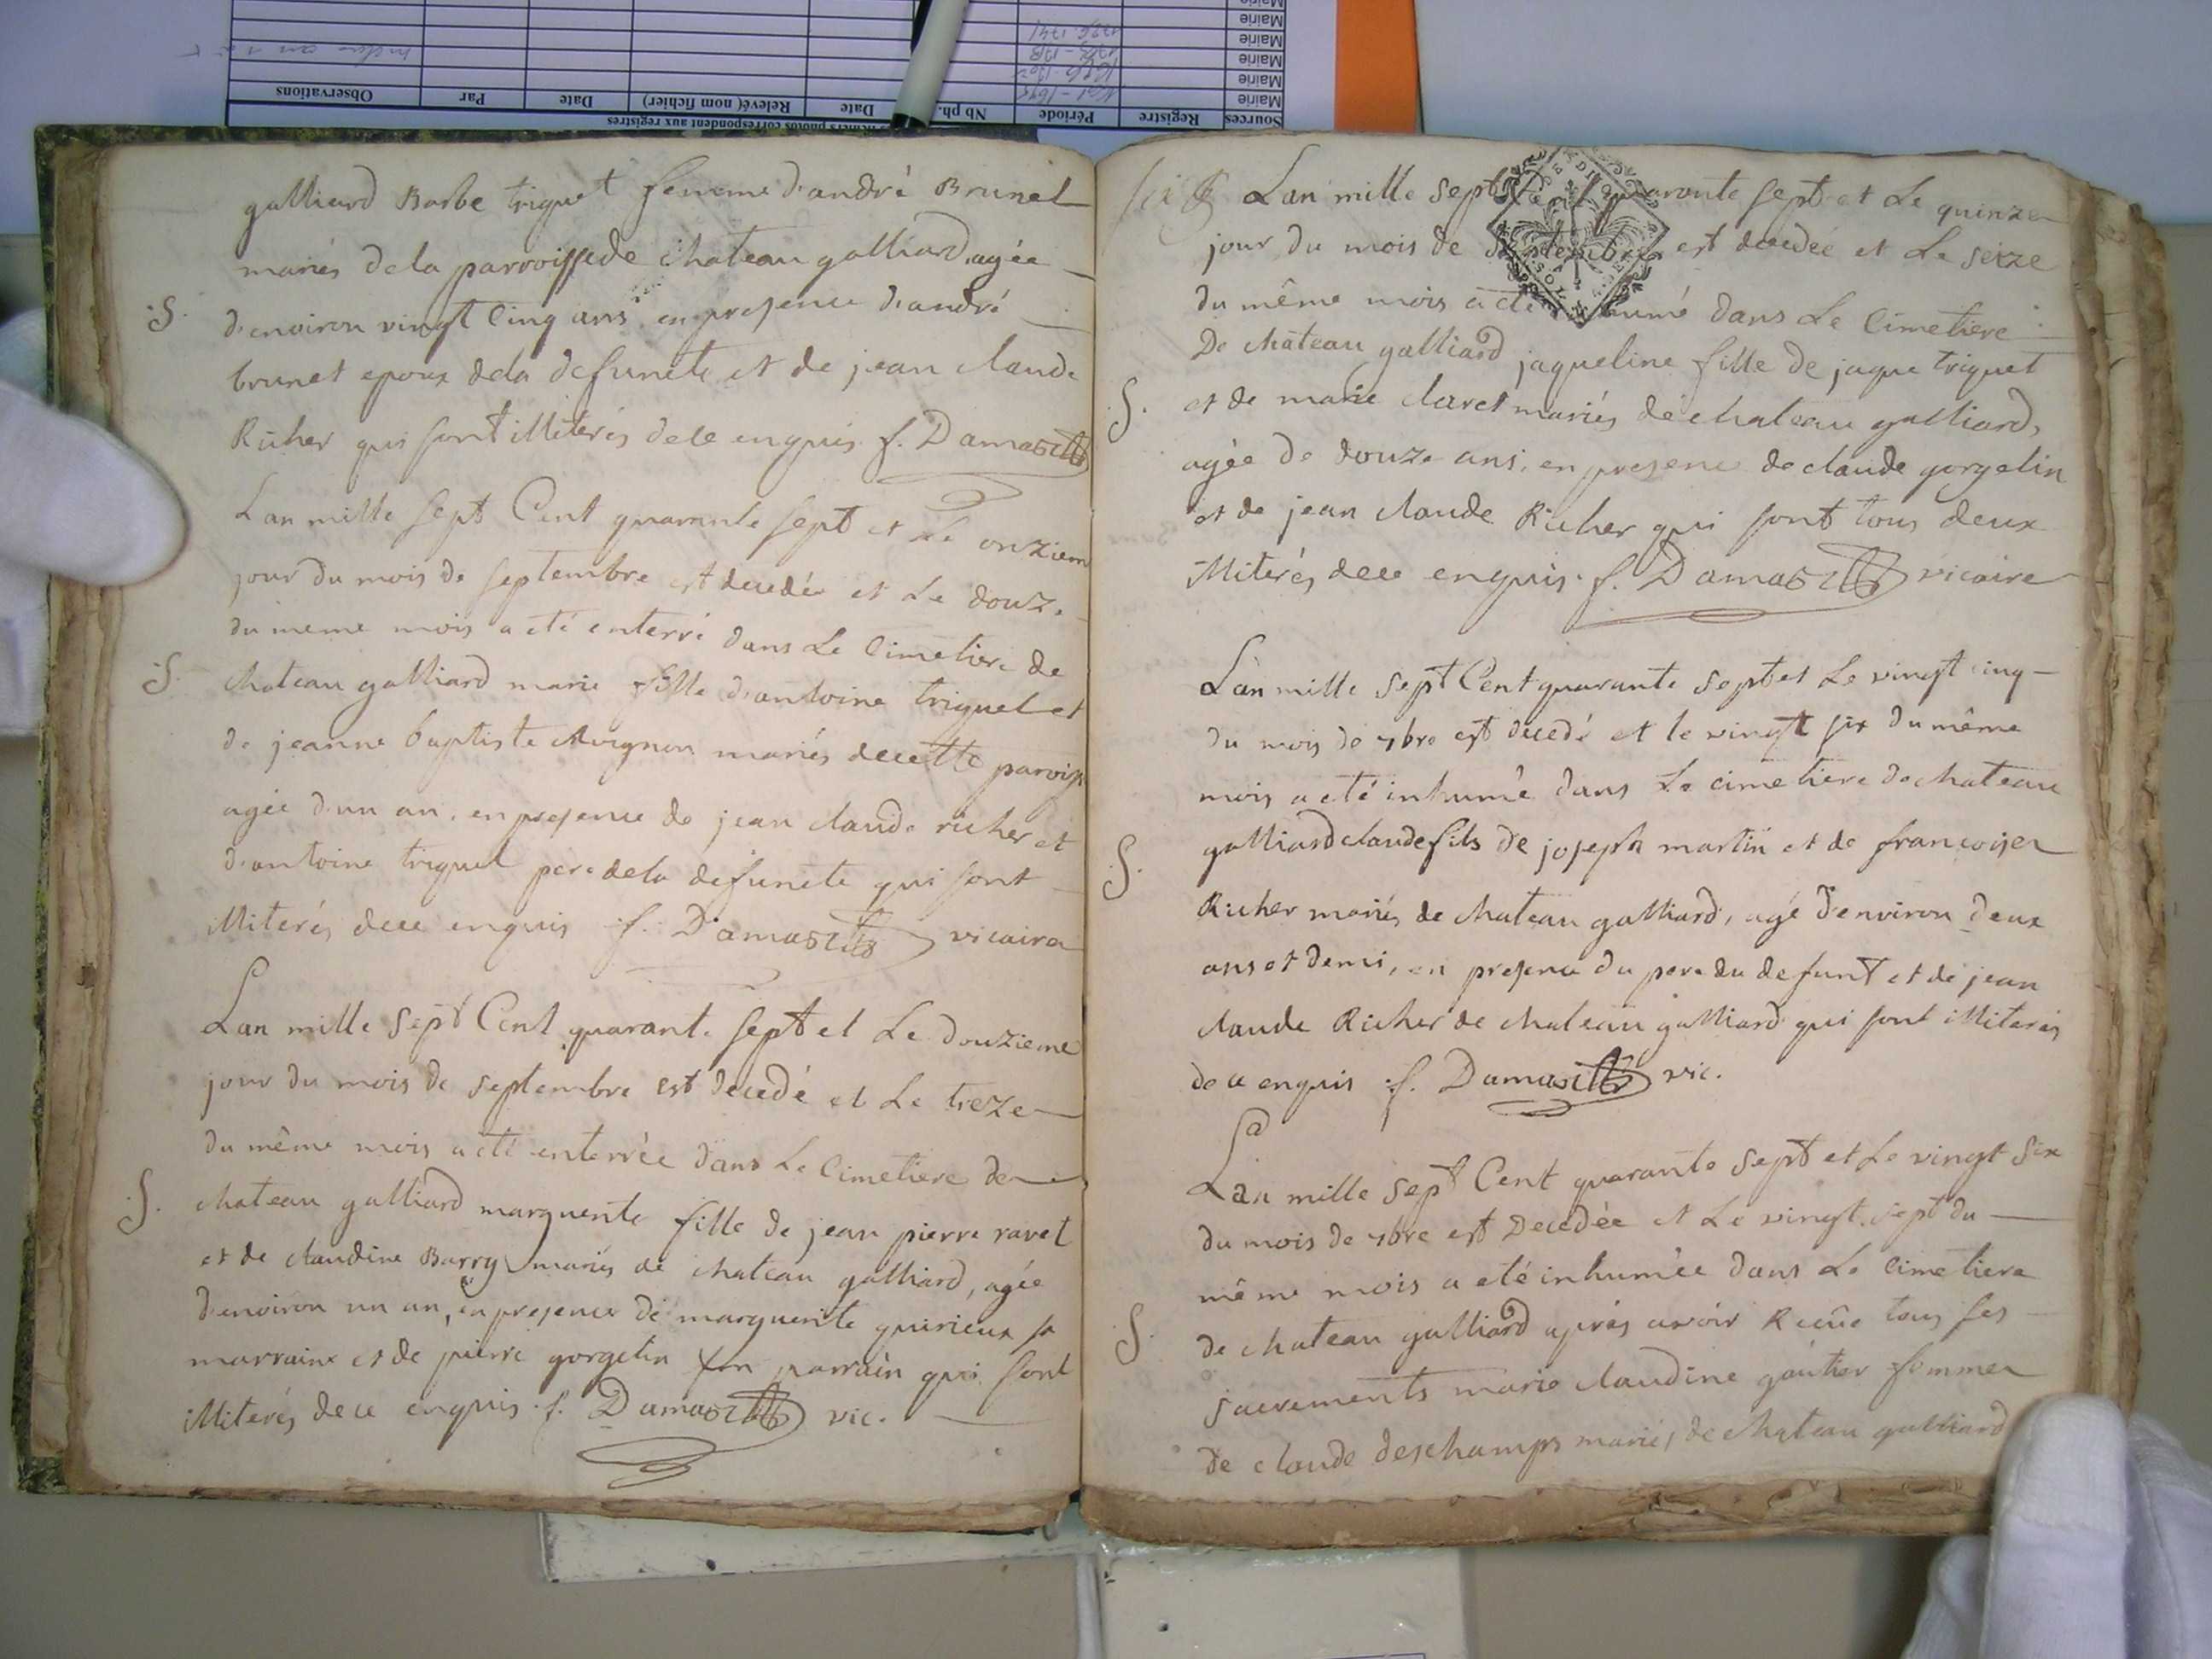 Sources Registre Période Nb ph. Date Relevé( nom fichier) Date Par Observations
Mairie
Mairie
Mairie
Mairie
galliard Barbe triquet femme d'andré Brunet
mariés dela parroisse de chateau galliard agée
S. d'environ vingt Cinq ans, en presence d'andré
brunet epoux dela defuncte et de jean claude
Richer qui sont illiterés dece enquis f. Damas
Lan mille sept Cent quarante sept et le onziem
jour du mois de septembre est decedée et Le douze
du meme mois a eté enterré dans Le Cimetiere de
S. chateau galliard marie fille d'antoine triquet et
de jeanne baptiste Avignon mariés decette paroisse
agée d'un an, en presence de jean claude richer et
d'antoine triquet pere dela defuncte qui sont
illiterés dece enquis f. Damas vicaire
Lan mille sept Cent quarante sept et Le douzieme
jour du mois de septembre est decedé et Le treze
du même mois a eté enterrée dans Le Cimetiere de
S. chateau galliard marguerite fille de jean pierre ravet
et de claudine Barry mariés de chateau galliard, agée
d'environ un an, en presence de marguerite guerieux sa
marraine et de pierre gorgelin son parrain qui sont
illiterés de ce enquis f. Damas vic.
six Lan mille sept Cent quarante sept et Le quinze
jour du mois de septembre est decedeé et Le seize
du même mois a eté inhumé dans Le Cimetiere
De chateau galliard jaqueline fille de jaque triquet
S. et de marie claret mariés de chateau galliard,
agée de douze ans, en presence de claude gorgelin
et de jean claude Richer qui sont tous deux
illiterés dece enquis. f. Damas vicaire
Lan mille sept Cent quarante sept et Le vingt cinq
du mois de 7bre est decedé et le vingt six du même
mois a eté inhumé dans Le cimetiere de chateau
S. galliard claude fils de joseph martin et de francoise
Richer mariés de chateau galliard, agé d'environ deux
ans et demi, en presence du pere du defunt et de jean
claude Richer de chateau galliard qui sont illiterés
de ce enquis f. Damas vic.
Lan mille sept Cent quarante sept et Le vingt six
du mois de 7bre est Decedée et Le vingt sept du
même mois a eté inhumée dans Le Cimetiere
S. de chateau galliard aprés avoir Receüe tous ses
sacrements marie claudine gautier femme
de claude deschamps mariés de chateau galliard